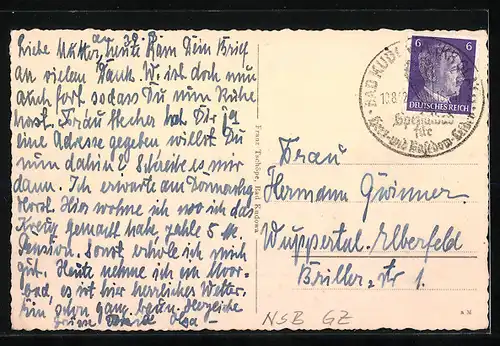 Liebe Mutter, heute kam Dein Brief
an vielen Dank. W. ist doch nun
auch fort sodass Du nun Ruhe
hast. Frau Stecher hat Dir ja
eine Adresse gegeben willst Du
nun dahin? Schreibe es mir
dann. Ich erwarte am Donnerstag
Horst. Hier wohne ich wo ich das
Kreuz gemacht habe zahle 5 M.
Pension. Sonst erhole ich mich
gut. Heute nehme ich ein Moor-
bad, es ist hier herrliches Wetter.
Bin schon ganz braun. Herzliche
Grüsse Olga
Franz Tschöpe, Bad Kudowa
BAD KUDOWA
Spezialbad
für
Herz- und Basedow-
6 6
DEUTSCHES REICH
Frau
Hermann Gwinner
Wuppertal-Elberfeld
Briller-str 1.
NSB GZ